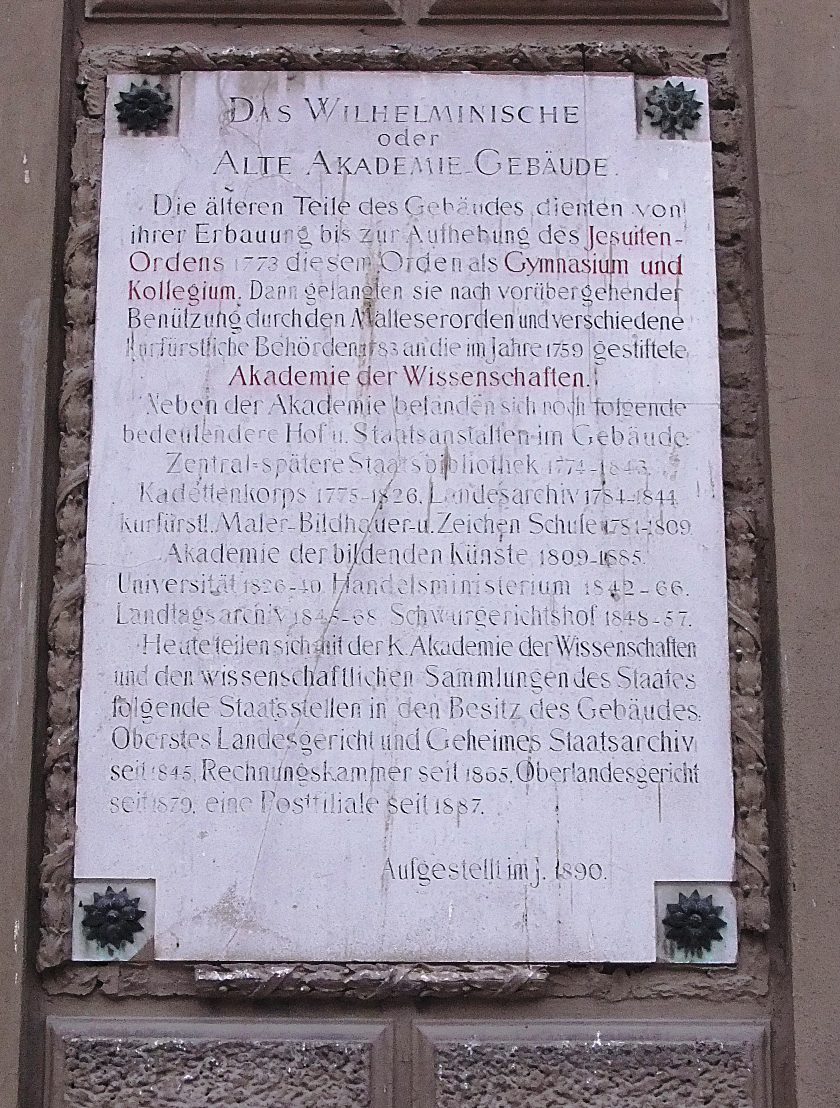 DAS WILHELMINISCHE
oder
ALTE AKADEMIE-GEBÄUDE.
Die älteren Teile des Gebäudes dienten von
ihrer Erbauung bis zur Aufhebung des Jesuiten-
Ordens 1773 diesem Orden als Gymnasium und
Kollegium. Dann gelangten sie nach vorübergehender
Benützung durch den Malteserorden und verschiedene
kurfürstliche Behörden 1783 an die im Jahre 1759 gestiftete
Akademie der Wissenschaften.
Neben der Akademie befanden sich noch folgende
bedeutendere Hof u. Staatsanstalten im Gebäude:
Zentral-spätere Staatsbibliothek 1774-1843.
Kadettenkorps 1775-1826. Landesarchiv 1784-1844
kurfürstl. Maler-Bildhauer-u. Zeichen Schule 1781-1809
Akademie der bildenden Künste 1809-1885.
Universität 1826-40. Handelsministerium 1842-66.
Landtagsarchiv 1845-68. Schwurgerichtshof 1848-57.
Heute teilen sich mit der K. Akademie der Wissenschaften
und den wissenschaftlichen Sammlungen des Staates
folgende Staatsstellen in den Besitz des Gebäudes:
Oberstes Landesgericht und Geheimes Staatsarchiv
seit 1845, Rechnungskammer seit 1865, Oberlandesgericht
seit 1879, eine Postfiliale seit 1887.
Aufgestellt im J. 1890.